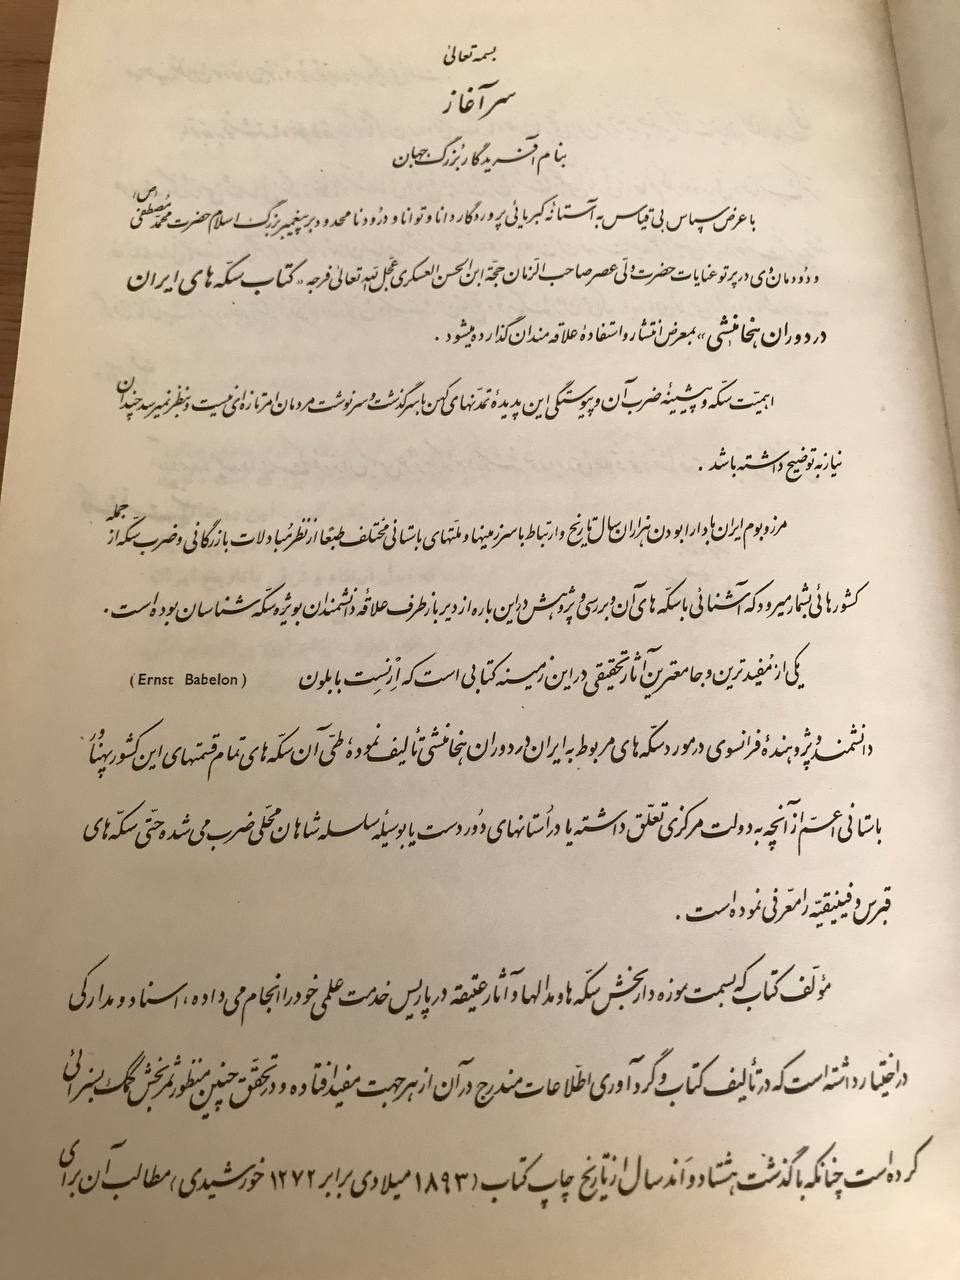 بسمه تعالی
سرآغاز
بنام آفریدگار بزرگ جهان
با عرض سپاس بی قیاس به آستانهٔ کبریائی پروردگار دانا و توانا و درود نامحدود بر پیغمبر بزرگ اسلام حضرت محمد مصطفی (ص)
و دودمان وی در پرتو عنایات حضرت ولی عصر صاحب الزمان حجة ابن الحسن العسکری عجل الله تعالی فرجه «کتاب سکّه های ایران
در دوران هخامنشی» بمعرض انتشار و استفادهٔ علاقه مندان گذارده میشود.
اهمیّت سکّه و پیشینهٔ ضرب آن و پیوستگی این پدیدهٔ تمدّنهای کهن با سرگذشت و سرنوشت مردمان امر تازه‌ای نیست و بنظر نمیرسد چندان
نیاز به توضیح داشته باشد.
مرز و بوم ایران با دارا بودن هزاران سال تاریخ و ارتباط با سرزمینها و ملّتهای باستانی مختلف طبعاً از نظر مبادلات بازرگانی و ضرب سکّه از جمله
کشورهائی بشمار میرود که آشنائی با سکّه های آن و بررسی و پژوهش در این باره از دیر باز طرف علاقهٔ دانشمندان بویژه سکّه شناسان بوده است.
یکی از مفیدترین و جامعترین آثار تحقیقی در این زمینه کتابی است که اِرْنِست بابلون (Ernst Babelon)
دانشمند و پژوهندهٔ فرانسوی در مورد سکّه های مربوط به ایران در دوران هخامنشی تألیف نموده طیّ آن سکّه های تمام قسمتهای این کشور پهناور
باستانی اعمّ از آنچه به دولت مرکزی تعلّق داشته یا در استانهای دوردست یا بوسیلهٔ سلسله شاهان محلّی ضرب می شده حتّی سکّه های
قبرس و فینیقیّه را معرّفی نموده است.
مؤلّف کتاب که بسمت موزه دار بخش سکّه ها و مدالها و آثار عتیقه در پاریس خدمت علمی خود را انجام می داده، اسناد و مدارکی
در اختیار داشته است که در تألیف کتاب و گردآوری اطّلاعات مندرج در آن از هر جهت مفید افتاده و در تحقّق چنین منظور ثمربخش کمک بسزائی
کرده است چنانکه با گذشت هشتاد و اند سال از تاریخ چاپ کتاب (۱۸۹۳ میلادی برابر ۱۲۷۲ خورشیدی) مطالب آن برای